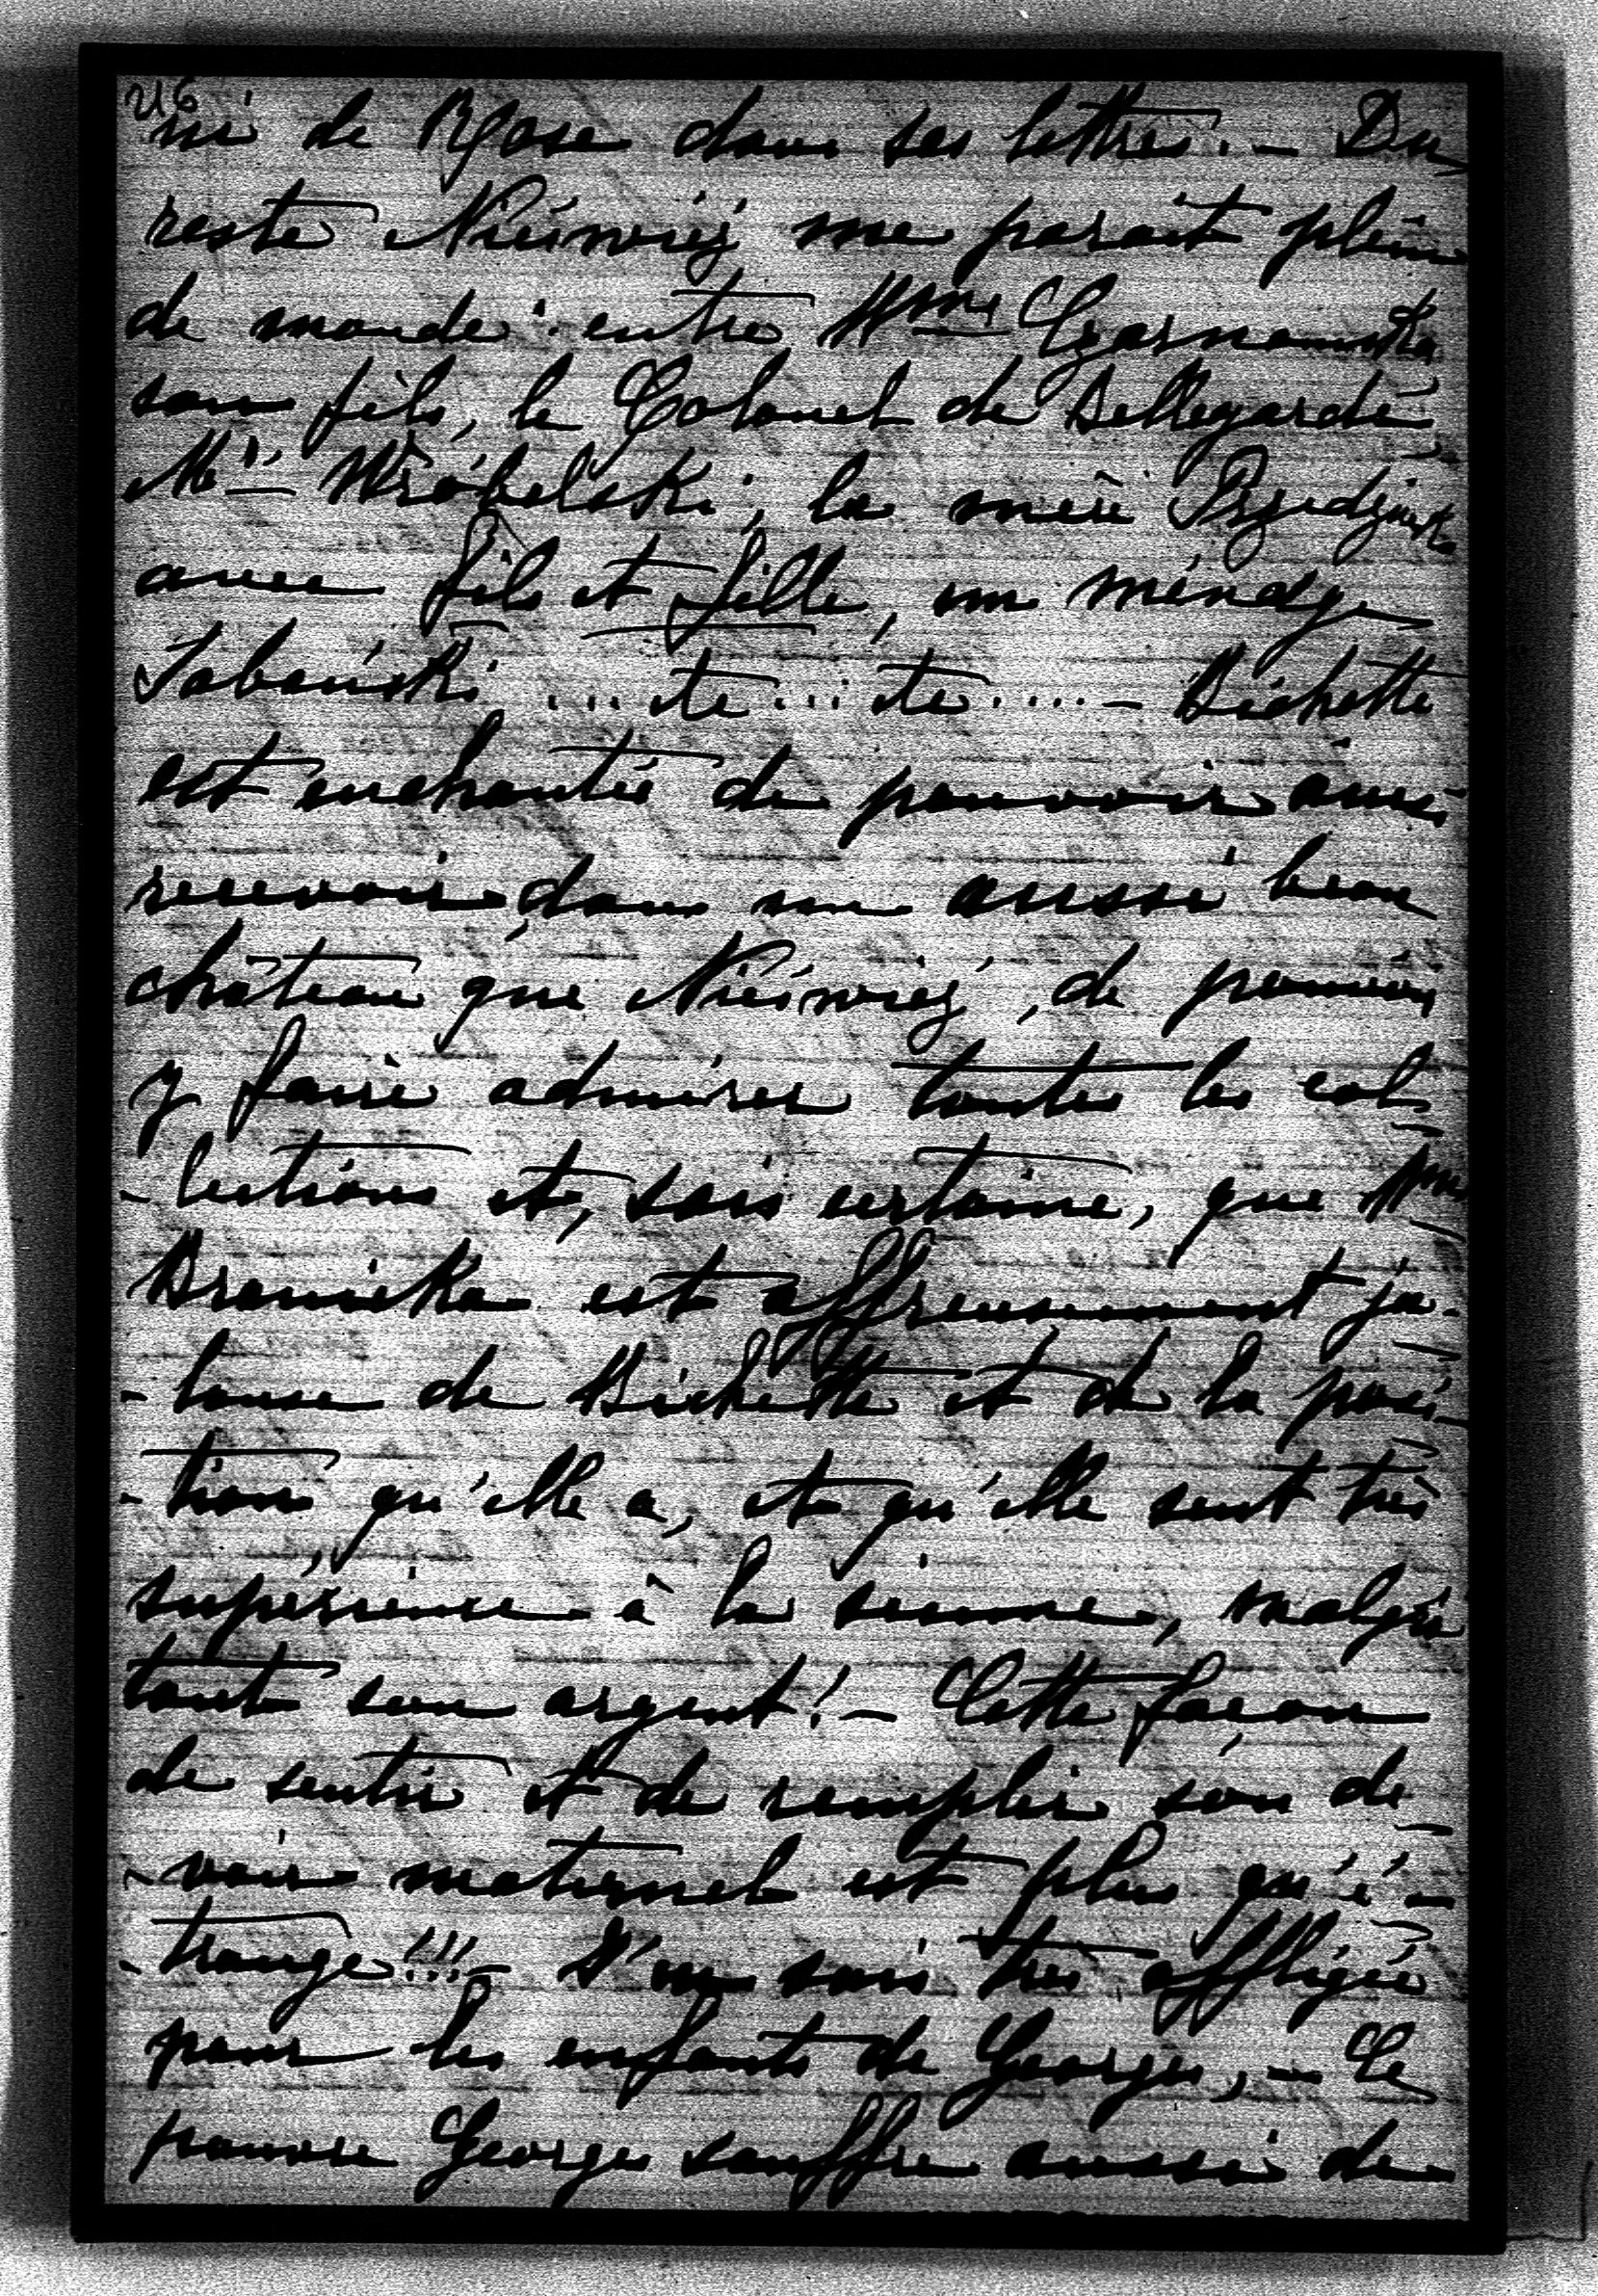 ni de Rose dans ses lettres. – Du
reste Nieśwież me parait plein
de monde: entre Mme Czarnowska
son fils, le Colonel de Bellegarde,
Mr Wróbelski, la mère
avec fils et fille, un ménage
Sobański ... etc ... etc .... – Bichette
est enchantée de pouvoir ainsi
recevoir, dans un aussi beau
château que Nieśwież, de pouvoir
y faire admirer toutes les col
-lections et, sois certaine, que Mme
Branicka est affreusement ja-
-louse de Bichette et de la posi-
-tion, qu'elle a, et qu'elle sent très
supérieure à la sienne, malgré
tout son argent! – Cette façon
de sentir et de remplir son de-
-voir maternel est plus qu'é-
-trange!!! – J'en suis très affligée
pour les enfants de Georges, – Le
pauvre Georges souffre aussi de